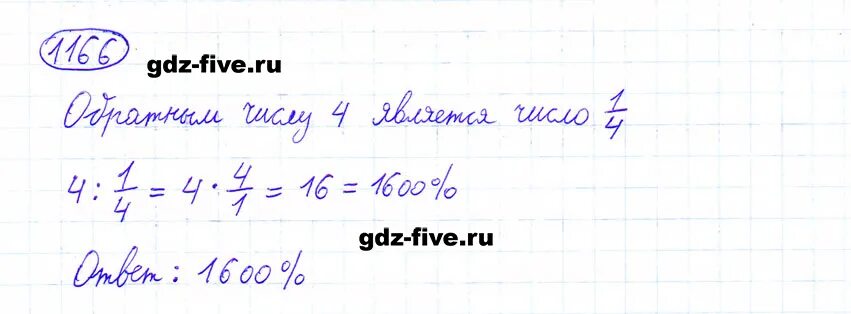 1166
gdz-five.ru
Обратным числу 4 является число 1/4
4 : 1/4 = 4 · 4/1 = 16 = 1600%
gdz-five.ru
Ответ: 1600%